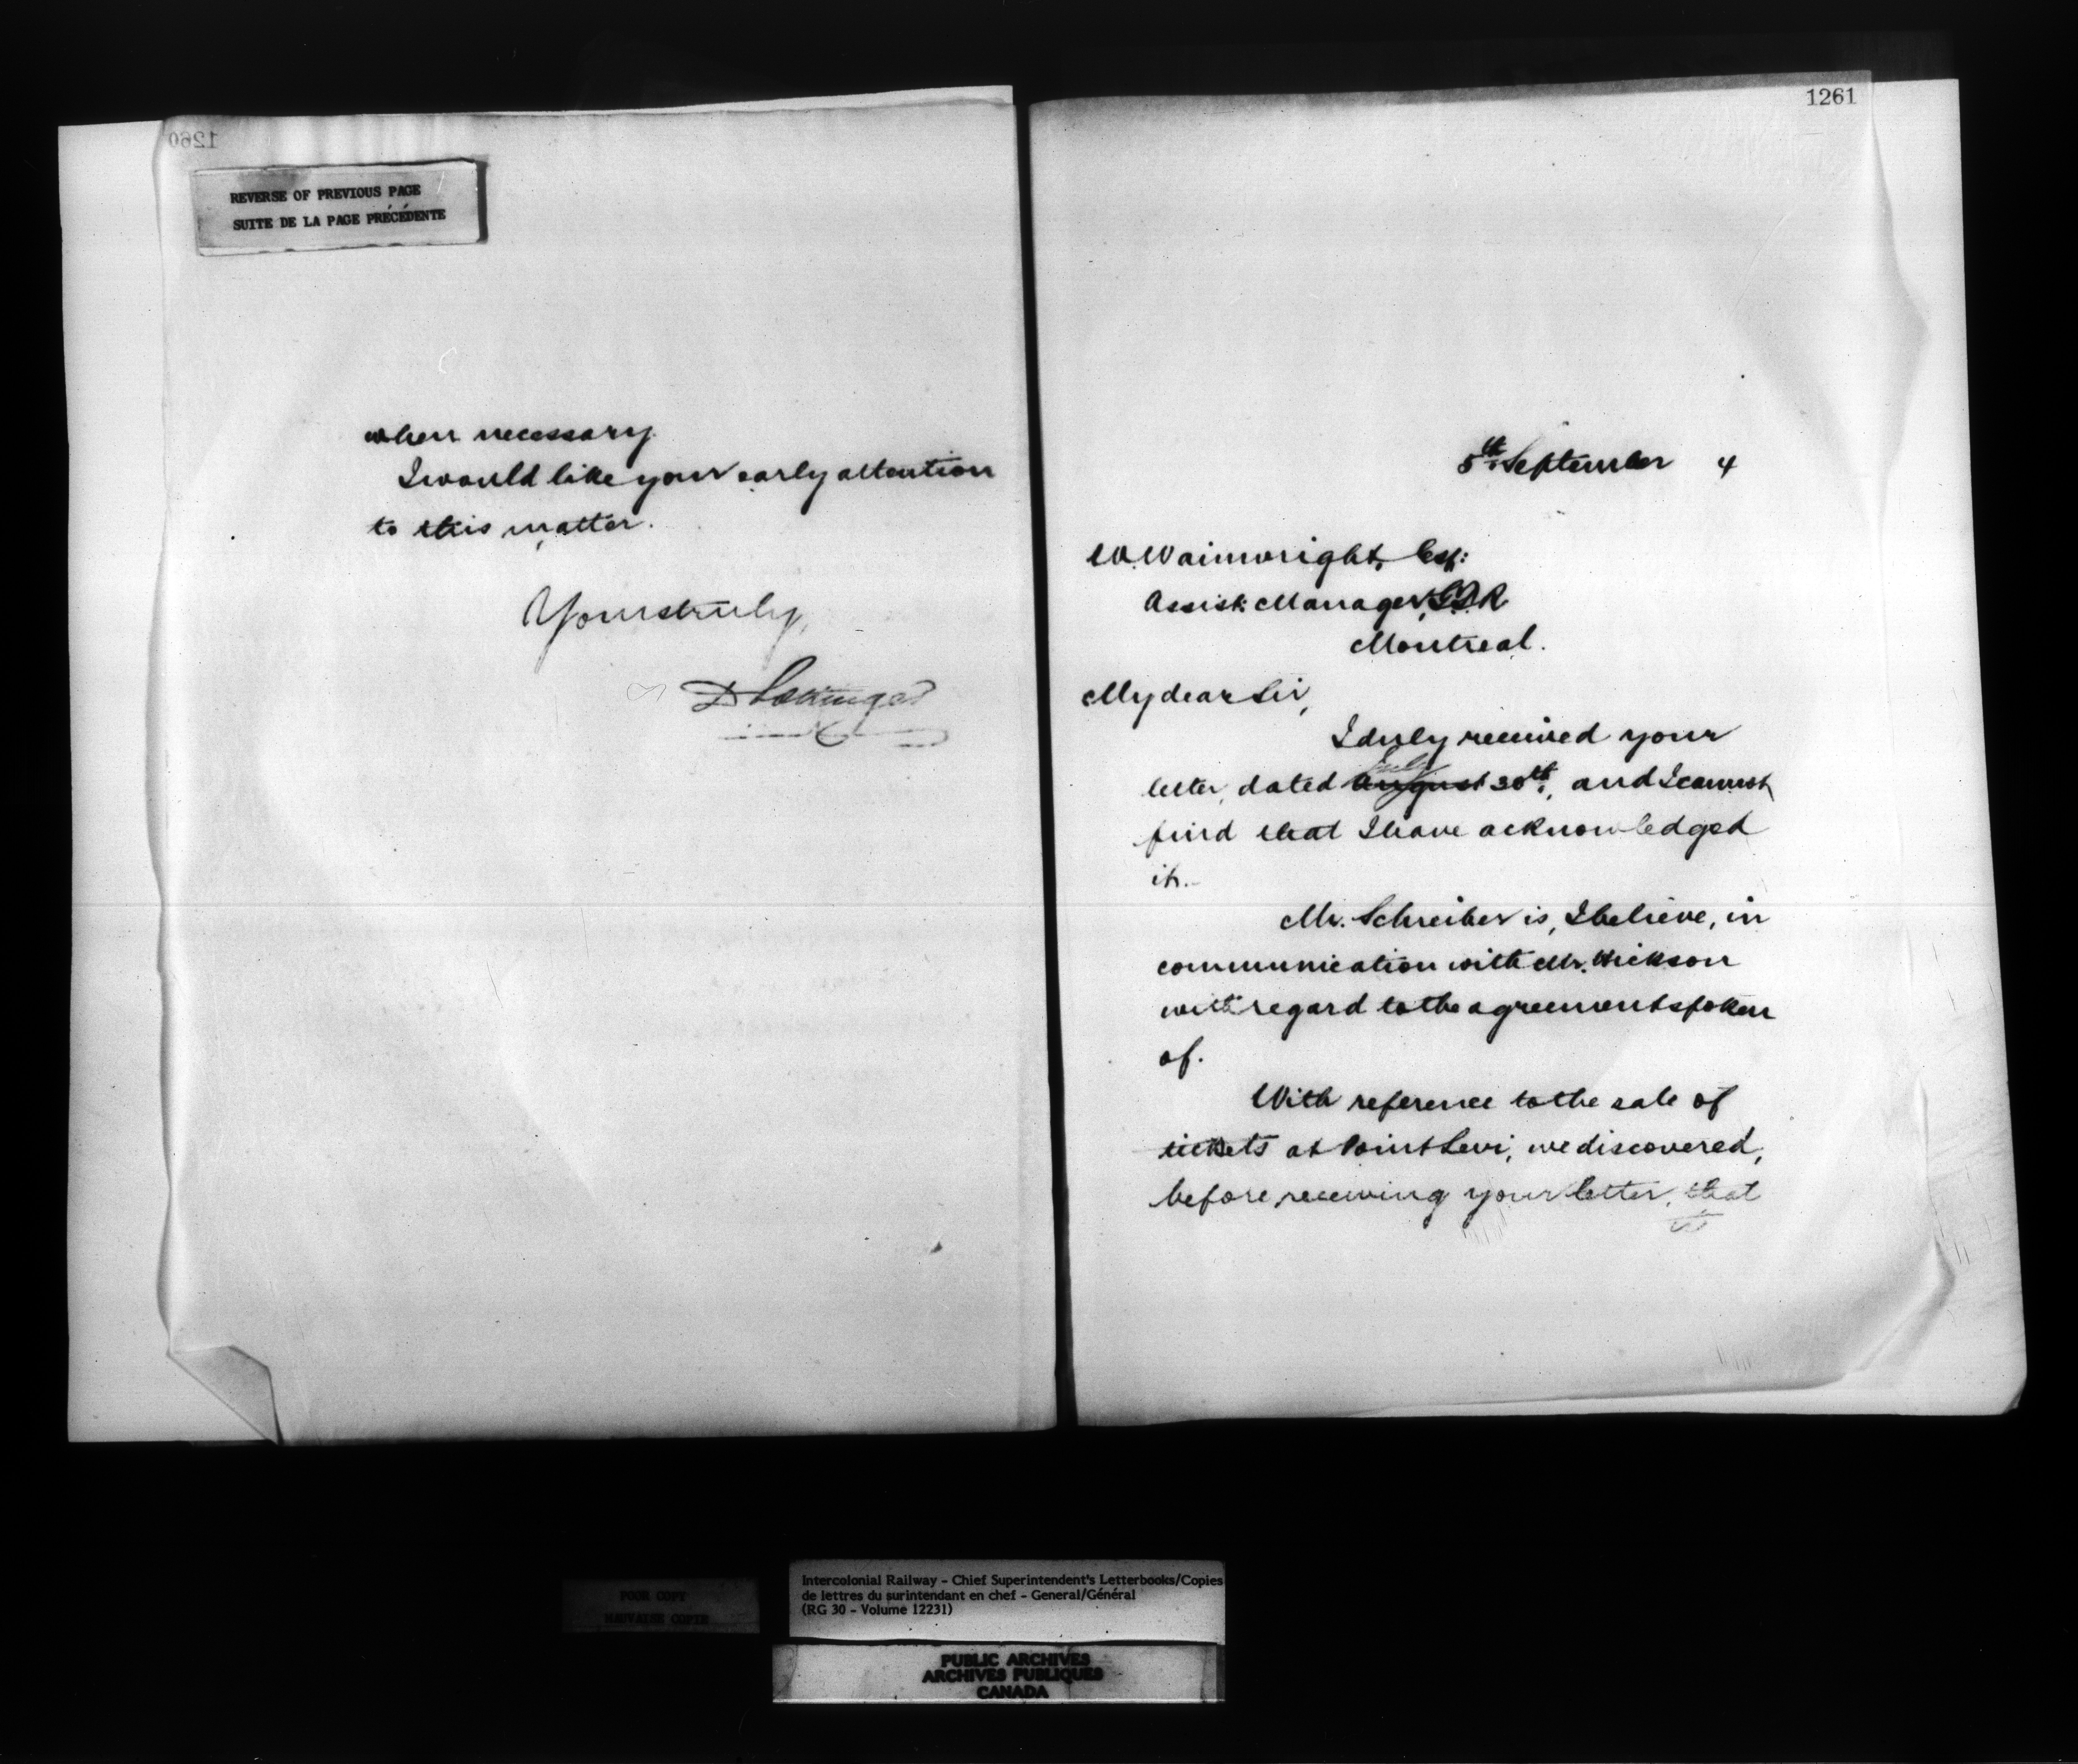 1260
REVERSE OF PREVIOUS PAGE
SUITE DE LA PAGE PRÉCÉDENTE
when necessary.
I would like your early attention
to this matter.
Yours truly,
D Pottinger
1261
5th September 4
W. Wainwright, Esq:
Assist: Manager, G.T.R
Montreal.
My dear Sir,
I duly received your
July
letter, dated August 30th, and I cannot
find that I have acknowledged
it.
Mr. Schreiber is, I believe, in
communication with Mr. Hickson
with regard to the agreement spoken
of.
With reference to the sale of
tickets at Point Levi, we discovered,
before receiving your letter, that
POOR COPY
MAUVAISE COPIE
Intercolonial Railway - Chief Superintendent's Letterbooks/Copies
de lettres du surintendant en chef - General/Général
(RG 30 - Volume 12231)
PUBLIC ARCHIVES
ARCHIVES PUBLIQUES
CANADA